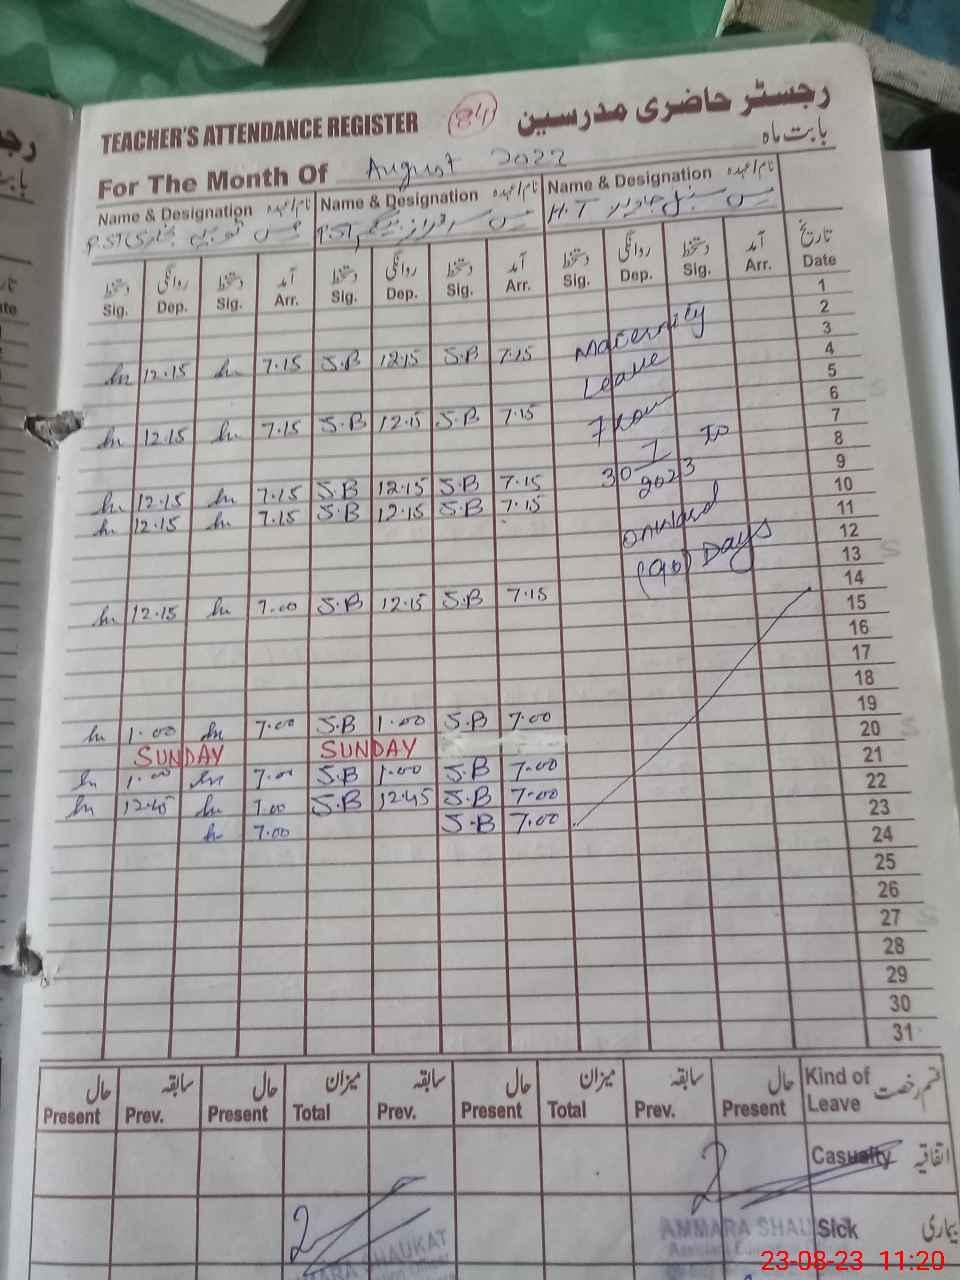 TEACHER'S ATTENDANCE REGISTER 84 رجسٹر حاضری مدرسین
For The Month Of August 2022 بابت ماہ
Name & Designation نام/عہدہ Name & Designation نام/عہدہ Name & Designation نام/عہدہ
P.ST P.ST, مس H.T مس
دستخط روانگی دستخط آمد دستخط روانگی دستخط آمد دستخط روانگی دستخط آمد تاریخ
Sig. Dep. Sig. Arr. Sig. Dep. Sig. Arr. Sig. Dep. Sig. Arr. Date
1
2
3
12.15 7.15 S.B 12.15 S.B 7.15 Maternity 4
Leave 5
6
12.15 7.15 S.B 12.15 S.B 7.15 7
8
30 7 to 9
12.15 7.15 S.B 12.15 S.B 7.15 2023 10
12.15 7.15 S.B 12.15 S.B 7.15 11
onward 12
(90) Days 13
14
12.15 7.00 S.B 12.15 S.B 7.15 15
16
17
18
19
1.00 7.00 S.B 1.00 S.B 7.00 20
SUNDAY SUNDAY 21
1.00 7.00 S.B 1.00 S.B 7.00 22
12.45 7.00 S.B 12.45 S.B 7.00 23
7.00 S.B 7.00 24
25
26
27
28
29
30
31
حال سابقہ حال میزان سابقہ حال میزان سابقہ حال Kind of قسم رخصت
Present Prev. Present Total Prev. Present Total Prev. Present Leave
2 Casualty اتفاقیہ
2 AMMARA SHAU Sick بیماری
SHAUKAT
23-08-23 11:20